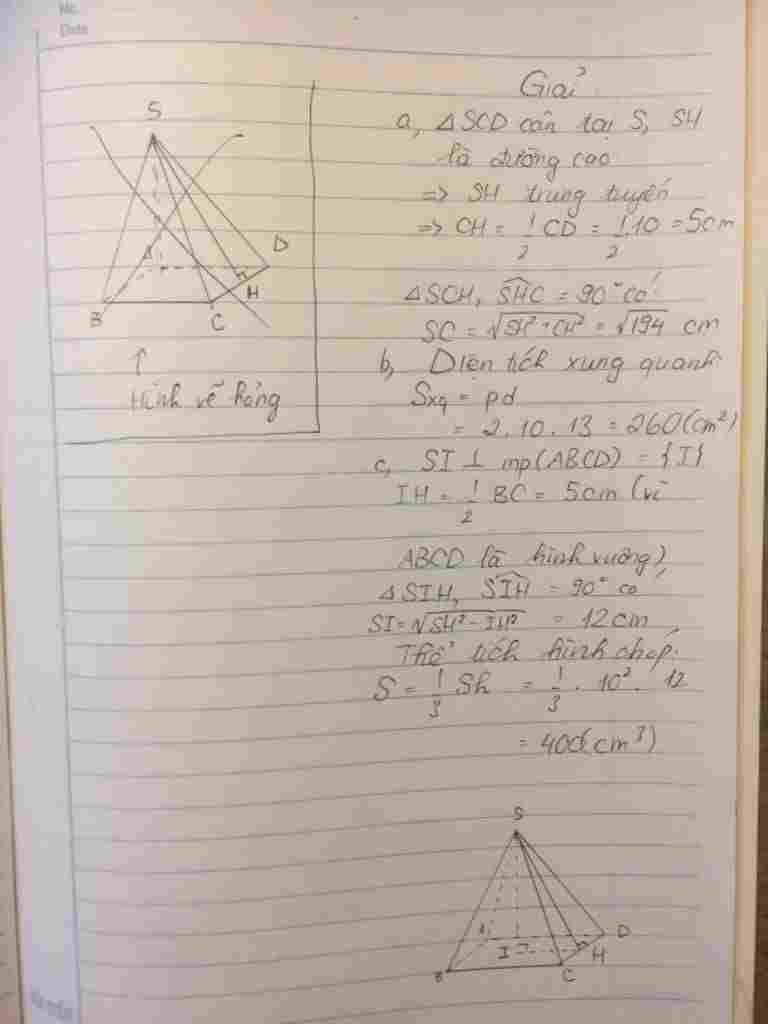 No.
Date
S
D
H
B
C
↑
Hình vẽ hỏng
Giải
a, △SCD cân tại S, SH
là đường cao
=> SH trung tuyến
=> CH = 1/2 CD = 1/2.10 = 5cm
△SCH, SHC = 90° có
SC = √SH² + CH² = √194 cm
b, Diện tích xung quanh
Sxq = pd
= 2.10.13 = 260(cm²)
c, SI ⊥ mp(ABCD) = {I}
IH = 1/2 BC = 5cm (vì
ABCD là hình vuông)
△SIH, SIH = 90° có
SI = √SH² - IH² = 12cm
Thể tích hình chóp:
S = 1/3 Sh = 1/3 . 10² . 12
= 400(cm³)
S
A
D
I
H
B
C